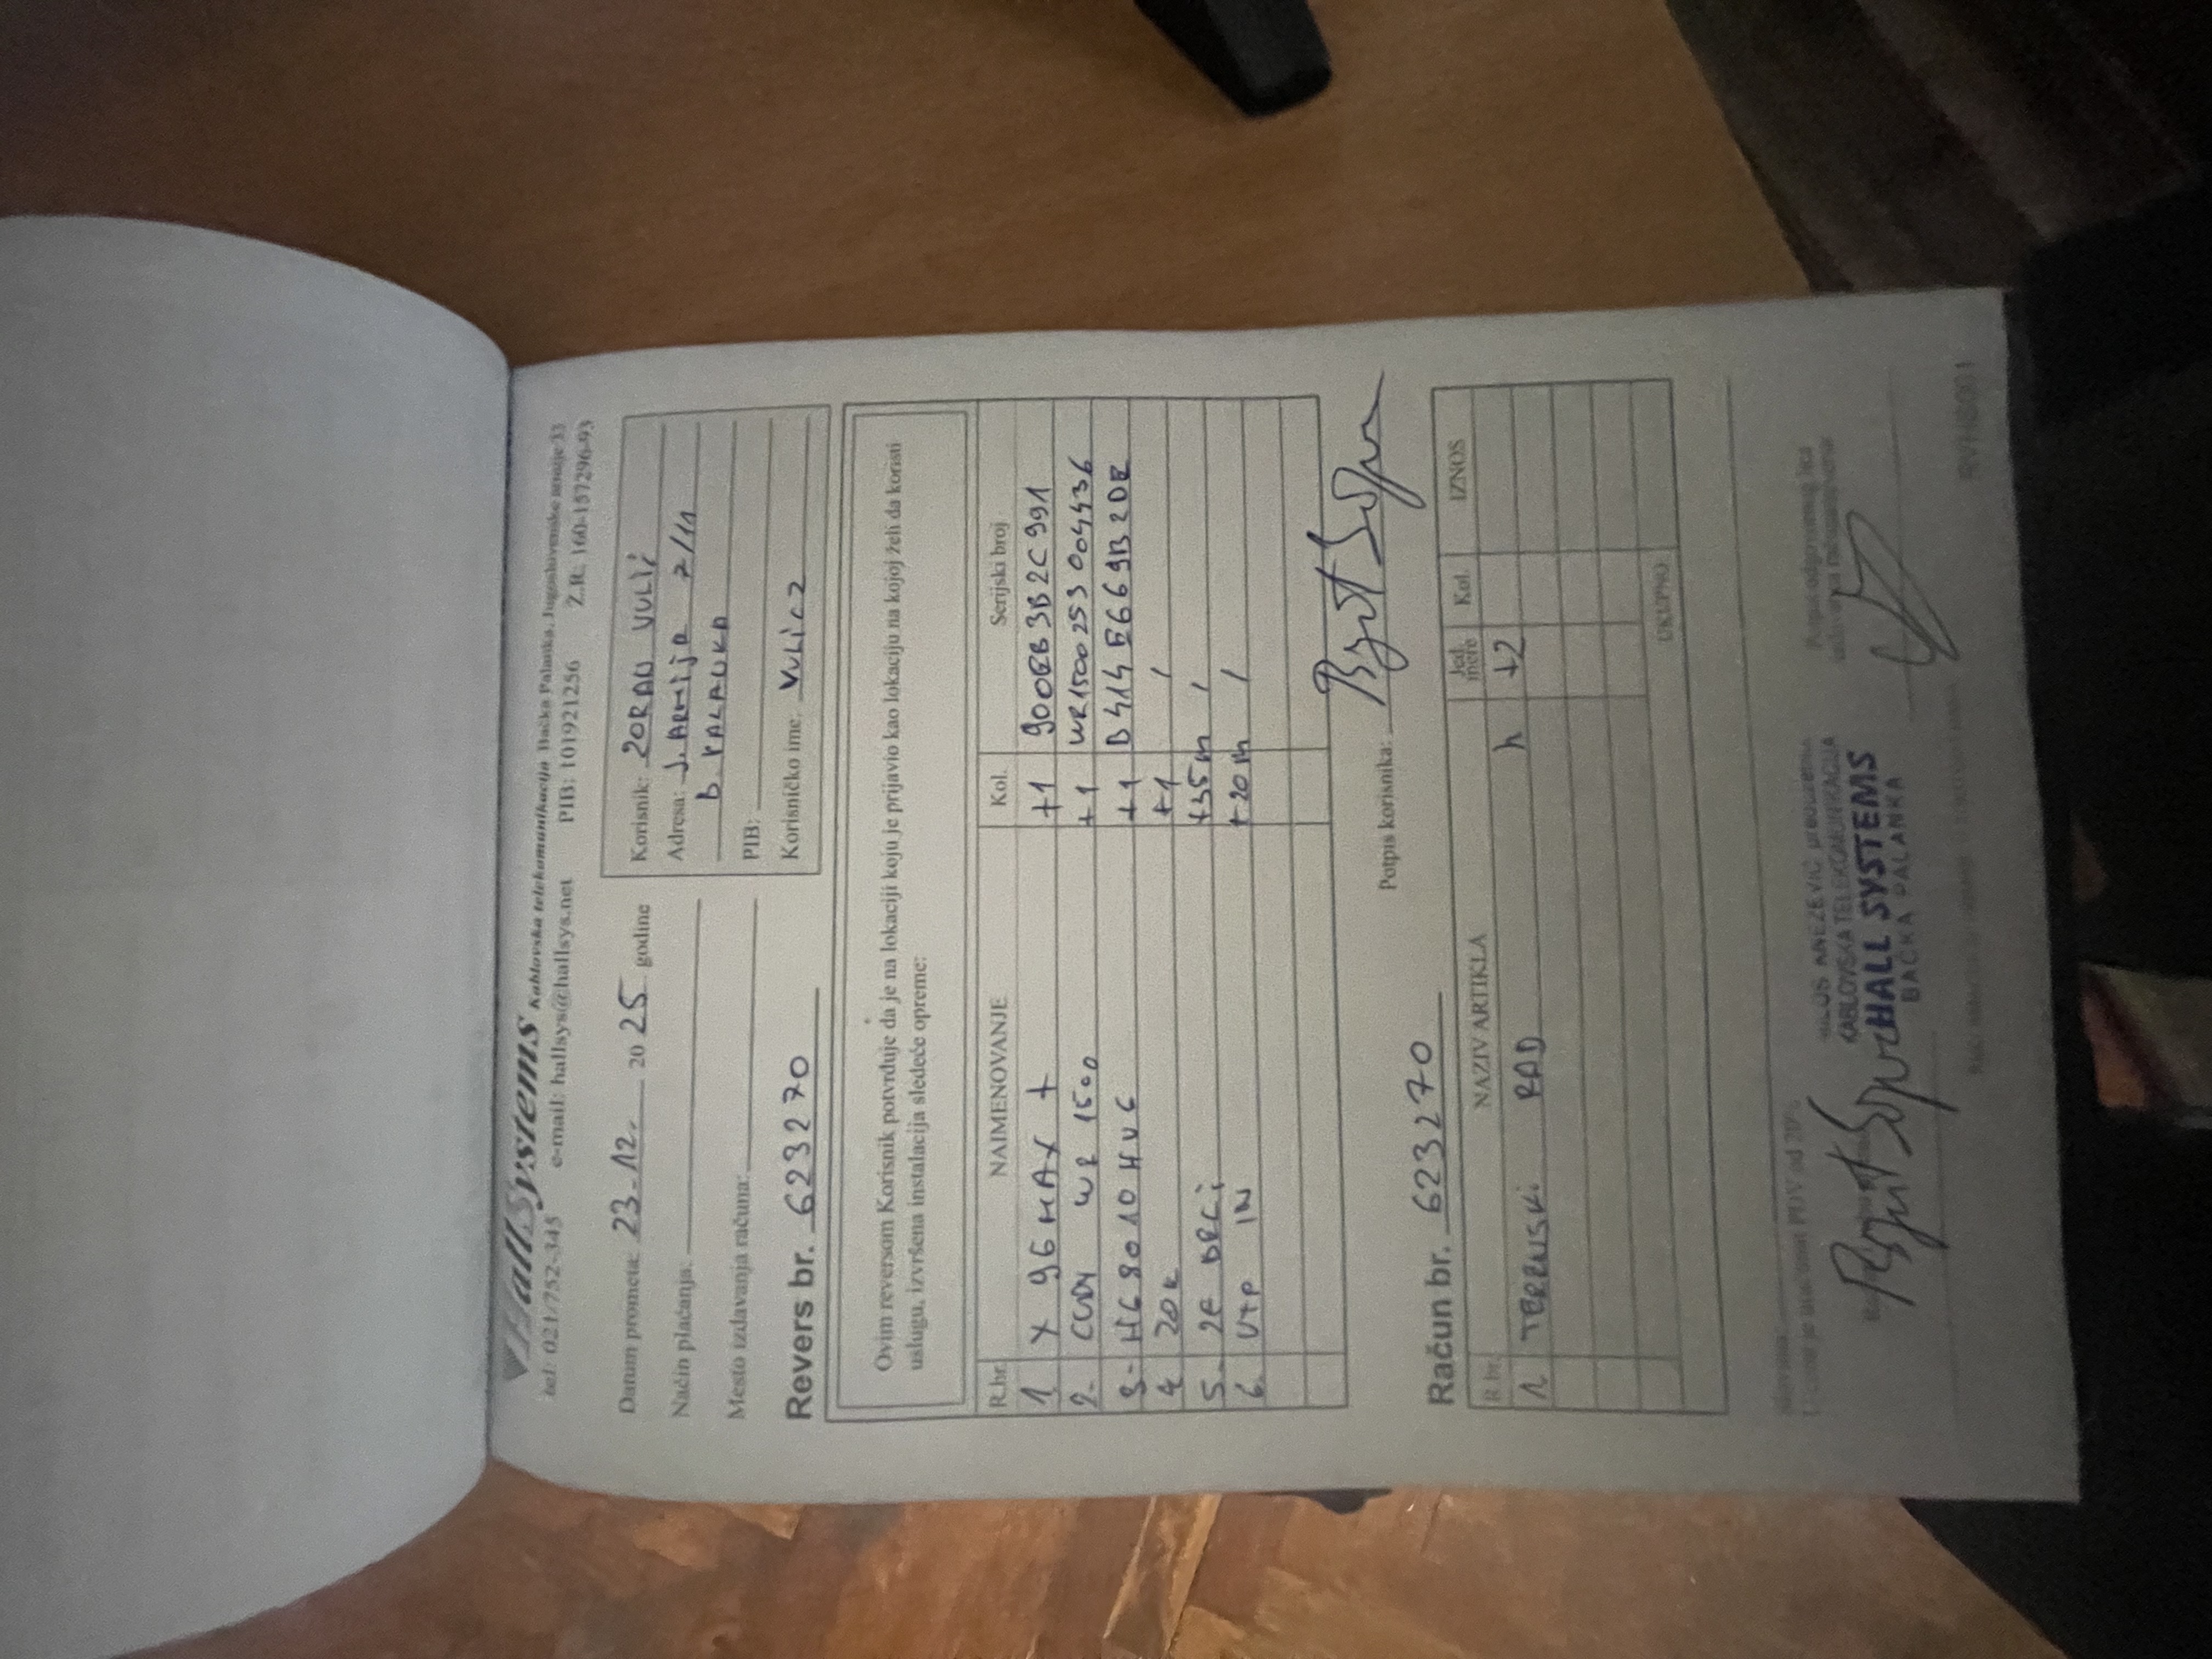 HallSystems Kablovska telekomunikacija Bačka Palanka, Jugoslovenske armije 33
tel: 021/752-345 e-mail: hallsys@hallsys.net PIB: 101921256 Ž.R.: 160-157296-93
Datum prometa: 23.12. 2025 godine
Način plaćanja:
Mesto izdavanja računa:
Korisnik: ZORAN VULIĆ
Adresa: J. ARMIJA 2/11
B. PALANKA
PIB:
Korisničko ime: VULIC2
Revers br. 623270
Ovim reversom Korisnik potvrđuje da je na lokaciji koju je prijavio kao lokaciju na kojoj želi da koristi
uslugu, izvršena instalacija sledeće opreme:
R.br. NAIMENOVANJE Kol. Serijski broj
1 X 96 MAX + +1 900EB3B2C991
2. WR 1500 +1 WR1500253004436
3. HG8010HV6 +1 B414E6669B2DE
4. ZOK +1 /
5. 2F DRCI +35m /
6. UTP IN +20m /
Potpis korisnika:
Račun br. 623270
R.br. NAZIV ARTIKLA Jed. mere Kol. IZNOS
1. TERENSKI RAD h +2
UKUPNO
KABLOVSKA TELEKOMUNIKACIJA
HALL SYSTEMS
BAČKA PALANKA